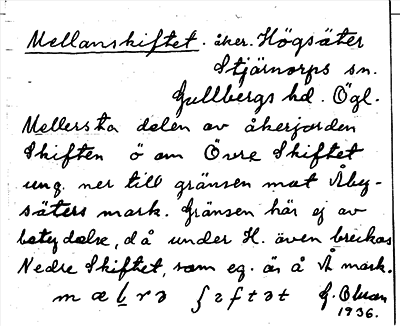 Mellanskiftet. åker. Högsäter
Stjärnorps sn.
Gullbergs hd. Ögl.
Mellersta delen av åkerjorden
Skiften ö om Övre Skiftet
ung. ner till gränsen mot Åby-
säters mark. Gränsen här ej av
betydelse, då under H. även brukas
Nedre Skiftet, som eg. är å Å mark.
m æ l r ə ʃ ə f t ə t G. Olson
1936.